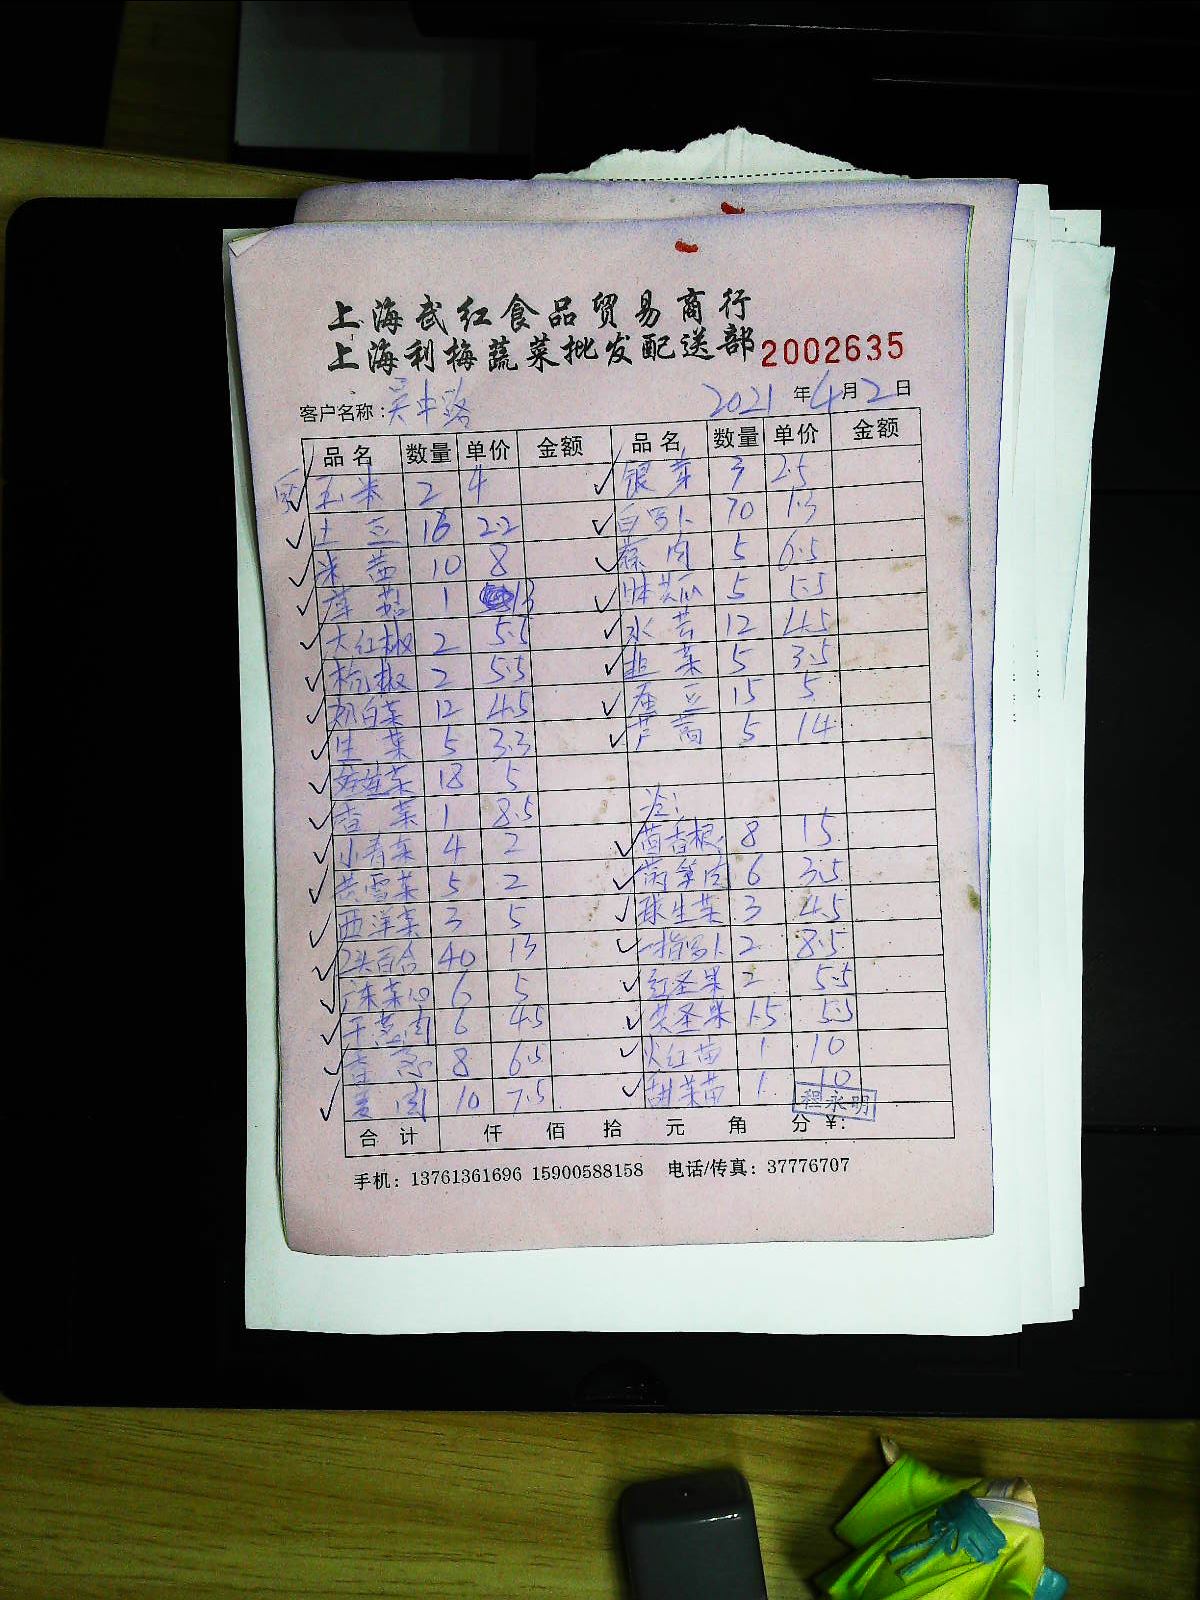 上海武红食品贸易商行
上海利梅蔬菜批发配送部 2002635
客户名称：吴中路 2021年4月2日
品名 数量 单价 金额 品名 数量 单价 金额
玉米 2 4 银芽 3 2.5
土豆 16 2.2 白罗卜 70 1.3
米茜 10 8 蒜肉 5 6.5
草菇 1 13 5 5.5
大红椒 2 5.5 水芹 12 4.5
杭椒 2 5.5 韭菜 5 3.5
奶白菜 12 4.5 蚕豆 15 5
生菜 5 3.3 芦蒿 5 14
娃娃菜 18 5
香菜 1 8.5 冷：
小青菜 4 2 茴香根 8 15
黄雪菜 5 2 莴笋肉 6 3.5
西洋菜 3 5 球生菜 3 4.5
2头百合 40 13 一指罗卜 2 8.5
广东菜心 6 5 红圣果 2 5.5
干葱肉 6 4.5 黄圣果 1.5 5.5
香葱 8 6.5 火红苗 1 10
姜肉 10 7.5 甜菜苗 1 10
程永明
合计 仟 佰 拾 元 角 分 ¥：
手机：13761361696 15900588158 电话/传真：37776707